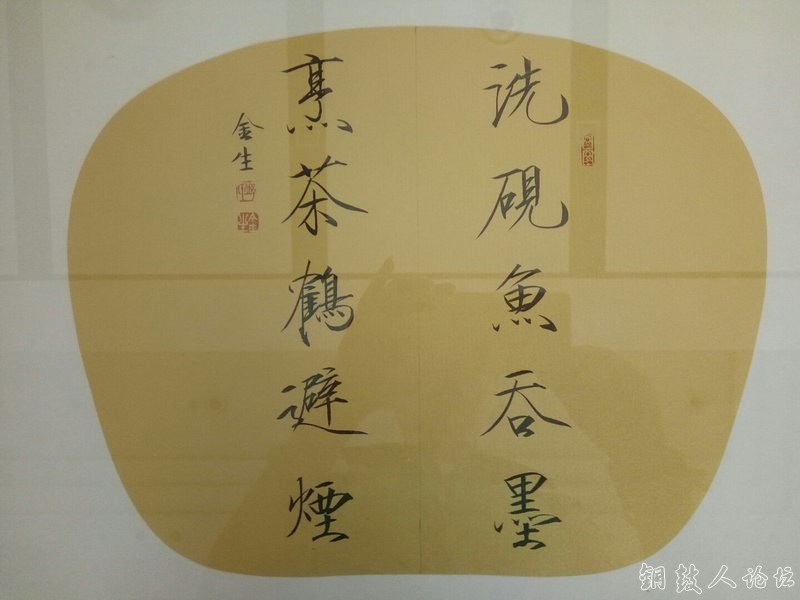 洗硯魚吞墨
烹茶鶴避煙
金生
铜鼓人论坛